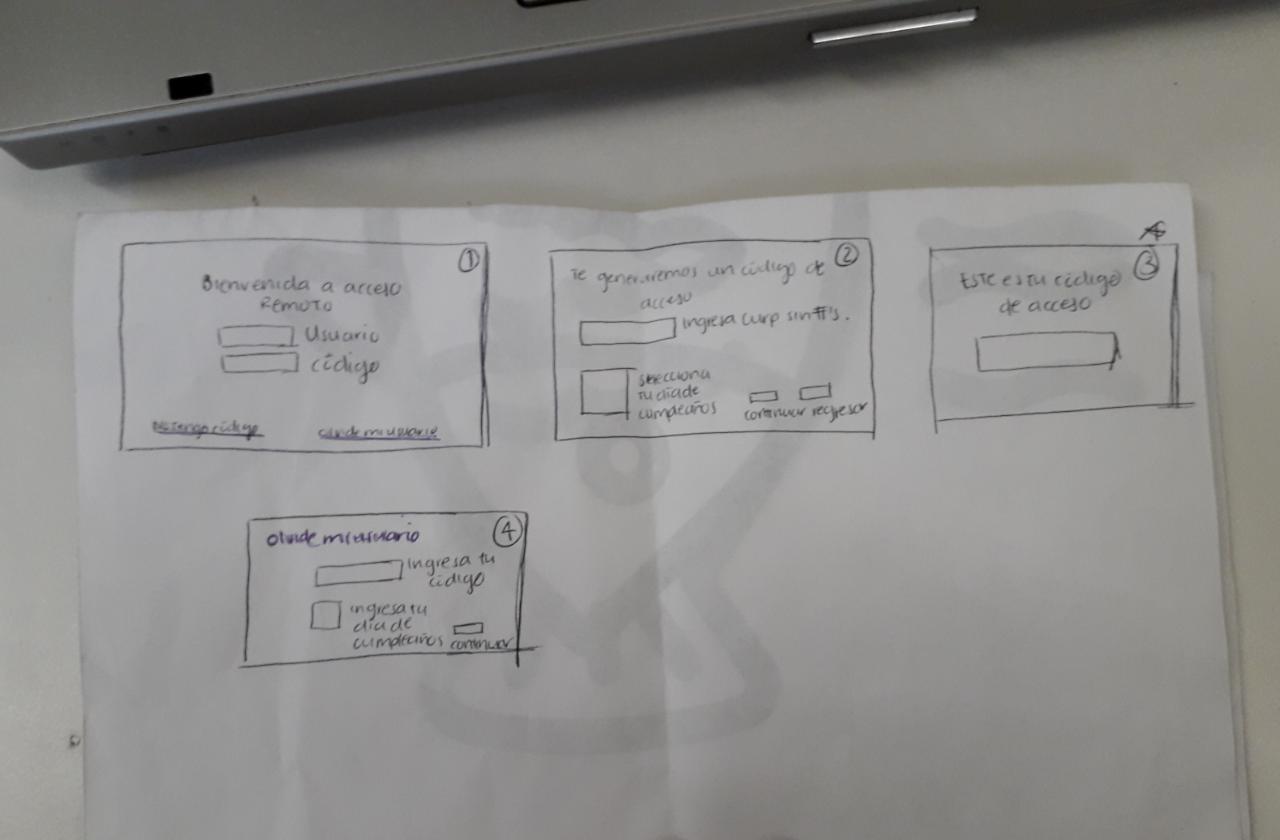 1
Bienvenida a acceso
Remoto
Usuario
código
No tengo código
olvide mi usuario
2
Te generaremos un código de
acceso
ingresa curp sin #'s.
selecciona
tu dia de
cumpleaños
continuar regresar
3
Este es tu código
de acceso
4
olvide mi usuario
ingresa tu
código
ingresa tu
dia de
cumpleaños
continuar